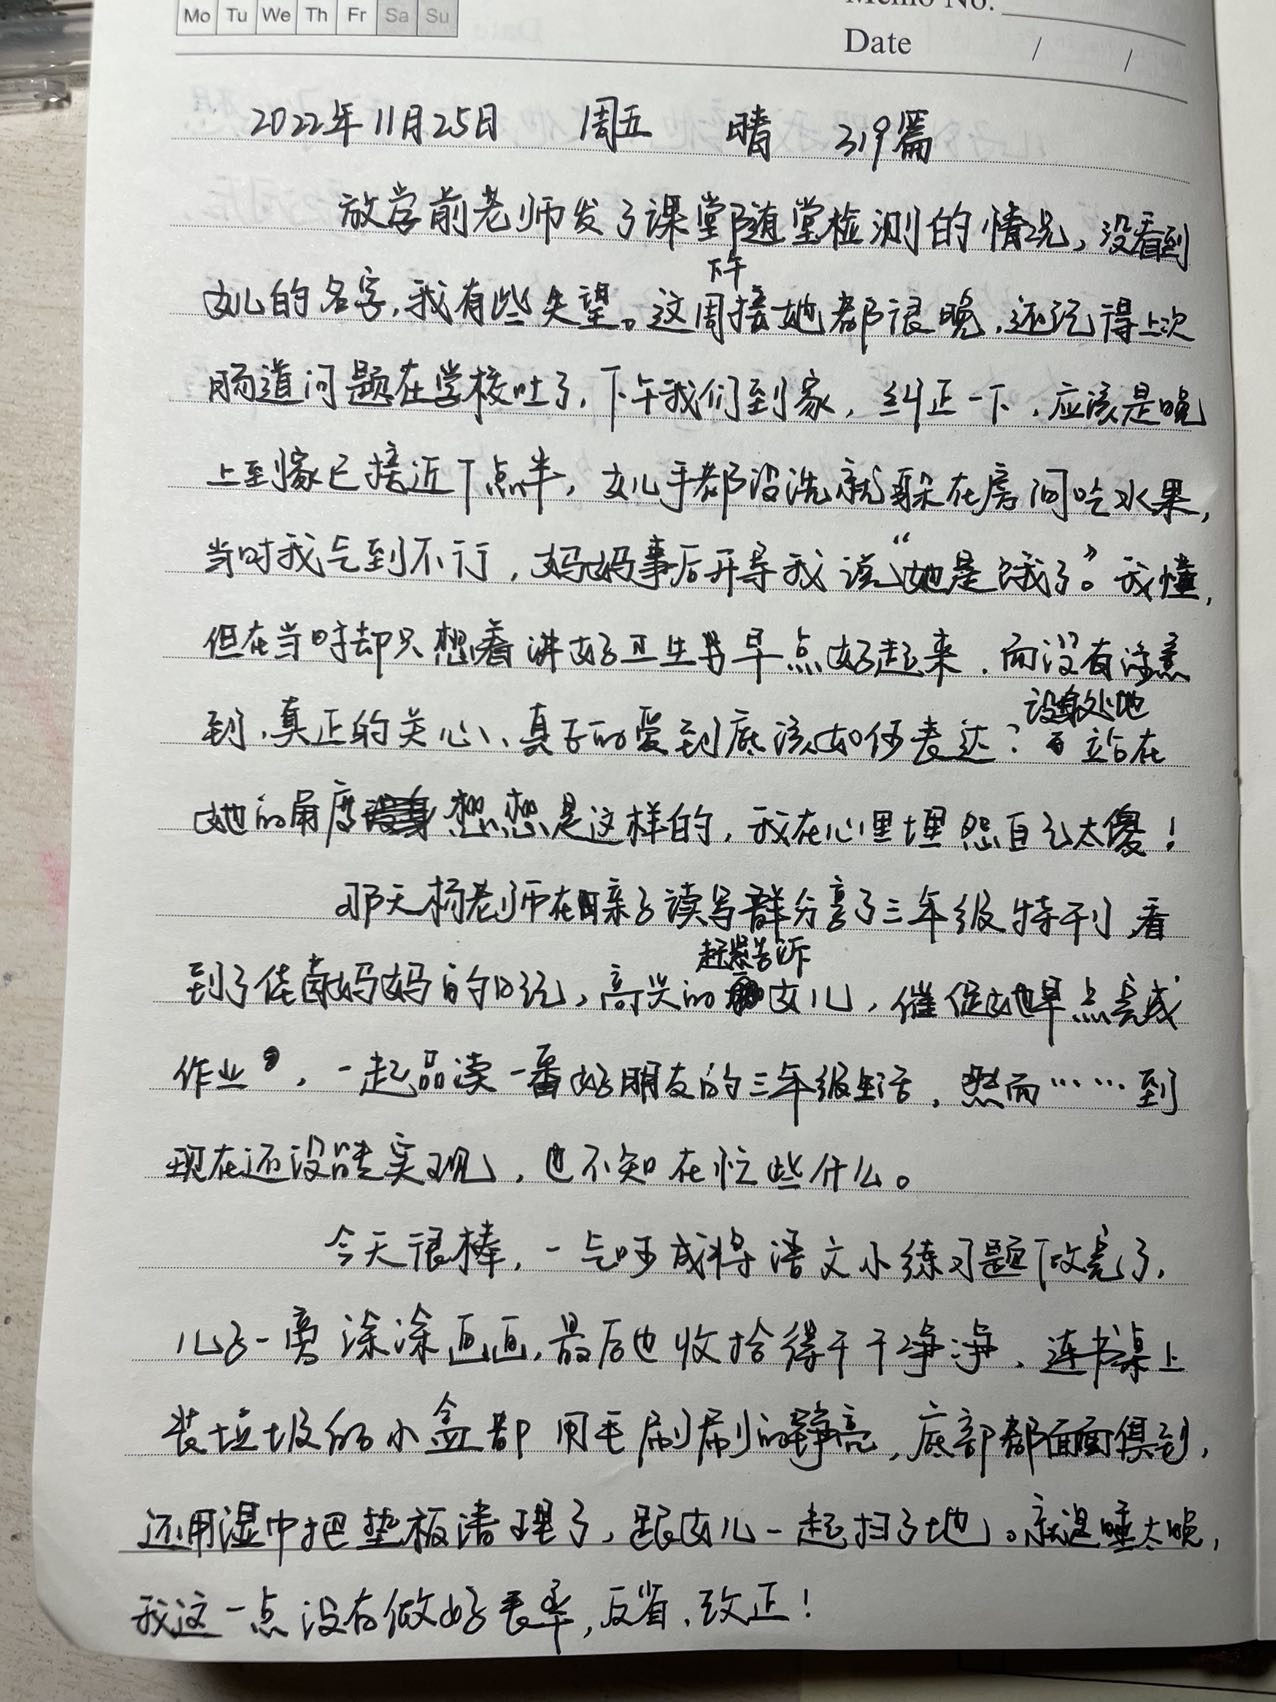 Mo Tu We Th Fr Sa Su
Memo No.
Date / /
2022年11月25日 周五 晴 319篇
放学前老师发了课堂随堂检测的情况，没看到
女儿的名字，我有些失望。这周下午接她都很晚，还记得上次
肠道问题在学校吐了，下午我们到家，纠正一下，应该是晚
上到家已接近下点半，女儿手都没洗就躲在房间吃水果，
当时我气到不行，妈妈事后开导我说“她是饿了”。我懂，
但在当时却只想着讲好卫生另早点好起来，而没有注意
到，真正的关心、真正的爱到底该如何表达？设身处地站在
她的角度想想是这样的，我在心里埋怨自己太傻！
那天杨老师在亲子读写群分享了三年级特刊，看
到了佳茵妈妈的日记，高兴的赶紧告诉女儿，催促她早点完成
作业，一起品读一番好朋友的三年级生活，然而……到
现在还没能实现，也不知在忙些什么。
今天很棒，一气呵成将语文小练习题做完了，
儿子一旁涂涂画画，最后也收拾得干干净净，连书桌上
装垃圾的小盒都用毛刷刷的锃亮，底部都面面俱到，
还用湿巾把垫板清理了，跟女儿一起扫了地。就是睡太晚，
我这一点没有做好表率，反省，改正！